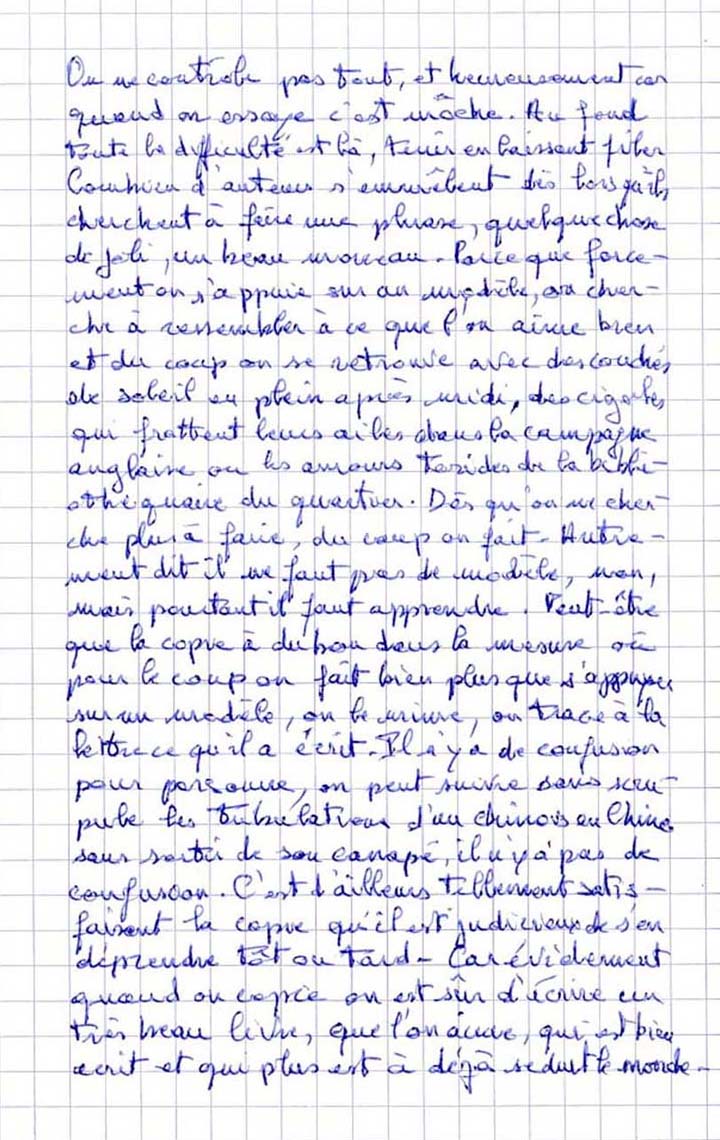 On ne contrôle pas tout, et heureusement car
quand on essaye c'est môche. Au fond
toute la difficulté est là, tenir en laissant filer
Combien d'auteurs s'emmêlent dès lors qu'ils
cherchent à faire une phrase, quelque chose
de joli, un beau morceau. Parce que force-
ment on s'appuie sur un modèle, on cher-
che à ressembler à ce que l'on aime bien
et du coup on se retrouve avec des couchés
de soleil en plein après midi, des cigales
qui frottent leurs ailes dans la campagne
anglaise ou les amours torrides de la biblio-
othéquaire du quartier. Dès qu'on ne cher-
che plus à faire, du coup on fait. Autre-
ment dit il ne faut pas de modèle, non,
mais pourtant il faut apprendre. Peut-être
que la copie à du bon dans la mesure où
pour le coup on fait bien plus que s'appuyer
sur un modèle, on le mime, on trace à la
lettre ce qu'il a écrit. Il n'y a de confusion
pour personne, on peut suivre sans scru-
pule les tribulations d'un chinois en Chine
sans sortir de son canapé, il n'y a pas de
confusion. C'est d'ailleurs tellement satis-
faisant la copie qu'il est judicieux de s'en
déprendre tôt ou tard. Car évidemment
quand on copie on est sûr d'écrire un
très beau livre, que l'on aime, qui est bien
écrit et qui plus est à déjà séduit le monde.